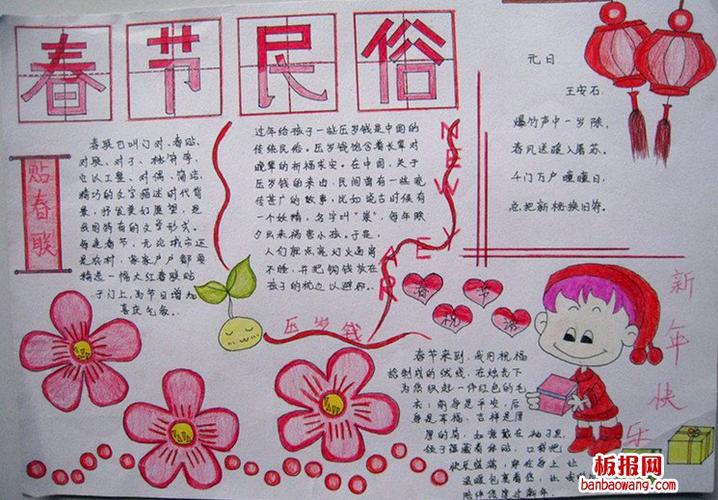 春节民俗
贴春联
春联也叫门对、春贴、
对联、对子、桃符等,
它以工整、对偶、简洁、
精巧的文字描述时代背
景,抒发美好愿望,是
我国特有的文学形式。
每逢春节,无论城市还
是农村,家家户户都要
精选一幅大红春联贴
于门上,为节日增加
喜庆气氛。
过年给孩子一些压岁钱是中国的
传统民俗。压岁钱饱含着长辈对
晚辈的祈福求安。在中国,关于
压岁钱的来由,民间曾有一些流
传甚广的故事,比如说古时候有
一个妖精,名字叫"祟",每年除
夕出来祸害小孩。于是,
人们就点亮灯火通宵
不睡,并把铜钱放在
孩子的枕边以避邪。
压岁钱
NEW
YEAR
元日
王安石
爆竹声中一岁除,
春风送暖入屠苏。
千门万户曈曈日,
总把新桃换旧符。
春节
祝福
春节来到,我用祝福
为您织起一件红色的毛
衣:前身是平安,后
身是幸福,吉祥是厚
新年快乐
板报网
banbaowang.com